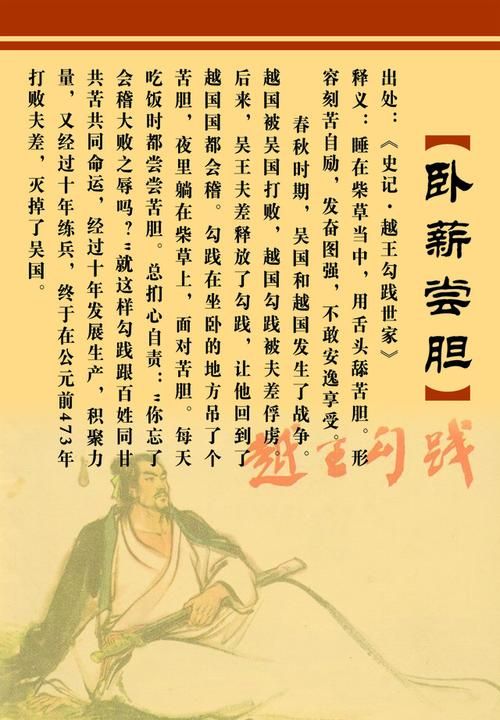 【卧薪尝胆】
出处：《史记·越王勾践世家》
释义：睡在柴草当中，用舌头舔苦胆。形
容刻苦自励，发奋图强，不敢安逸享受。
春秋时期，吴国和越国发生了战争。
越国被吴国打败，越国勾践被夫差俘虏。
后来，吴王夫差释放了勾践，让他回到了
越国国都会稽。勾践在坐卧的地方吊了个
苦胆，夜里躺在柴草上，面对苦胆。每天
吃饭时都尝尝苦胆。总扪心自责："你忘了
会稽大败之辱吗？"就这样勾践跟百姓同甘
共苦共同命运，经过十年发展生产，积聚力
量，又经过十年练兵，终于在公元前473年
打败夫差，灭掉了吴国。
越王勾践